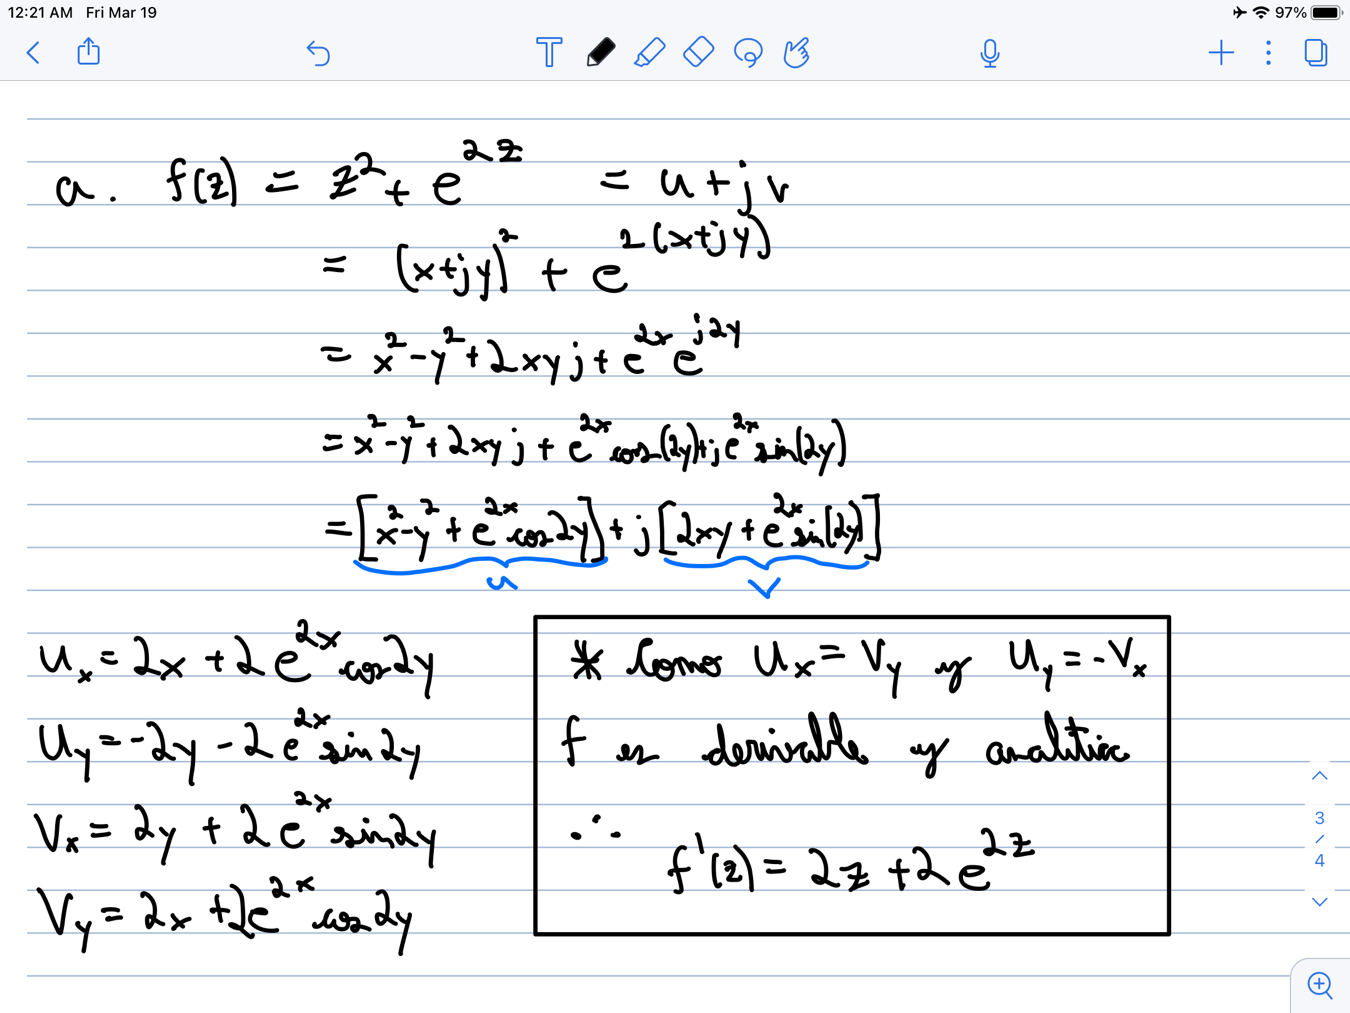 12:21 AM Fri Mar 19 97%
T
a. f(z) = z² + e^{2z} = u + j v
= (x+jy)² + e^{2(x+jy)}
= x² - y² + 2xyj + e^{2x} e^{j2y}
= x² - y² + 2xyj + e^{2x} cos(2y) + j e^{2x} sin(2y)
= [x² - y² + e^{2x} cos2y] + j [2xy + e^{2x} sin(2y)]
u v
U_x = 2x + 2e^{2x} cos2y
U_y = -2y - 2e^{2x} sin2y
V_x = 2y + 2e^{2x} sin2y
V_y = 2x + 2e^{2x} cos2y
* Como U_x = V_y y U_y = -V_x
f es derivable y analitica
∴ f'(z) = 2z + 2e^{2z}
3/4